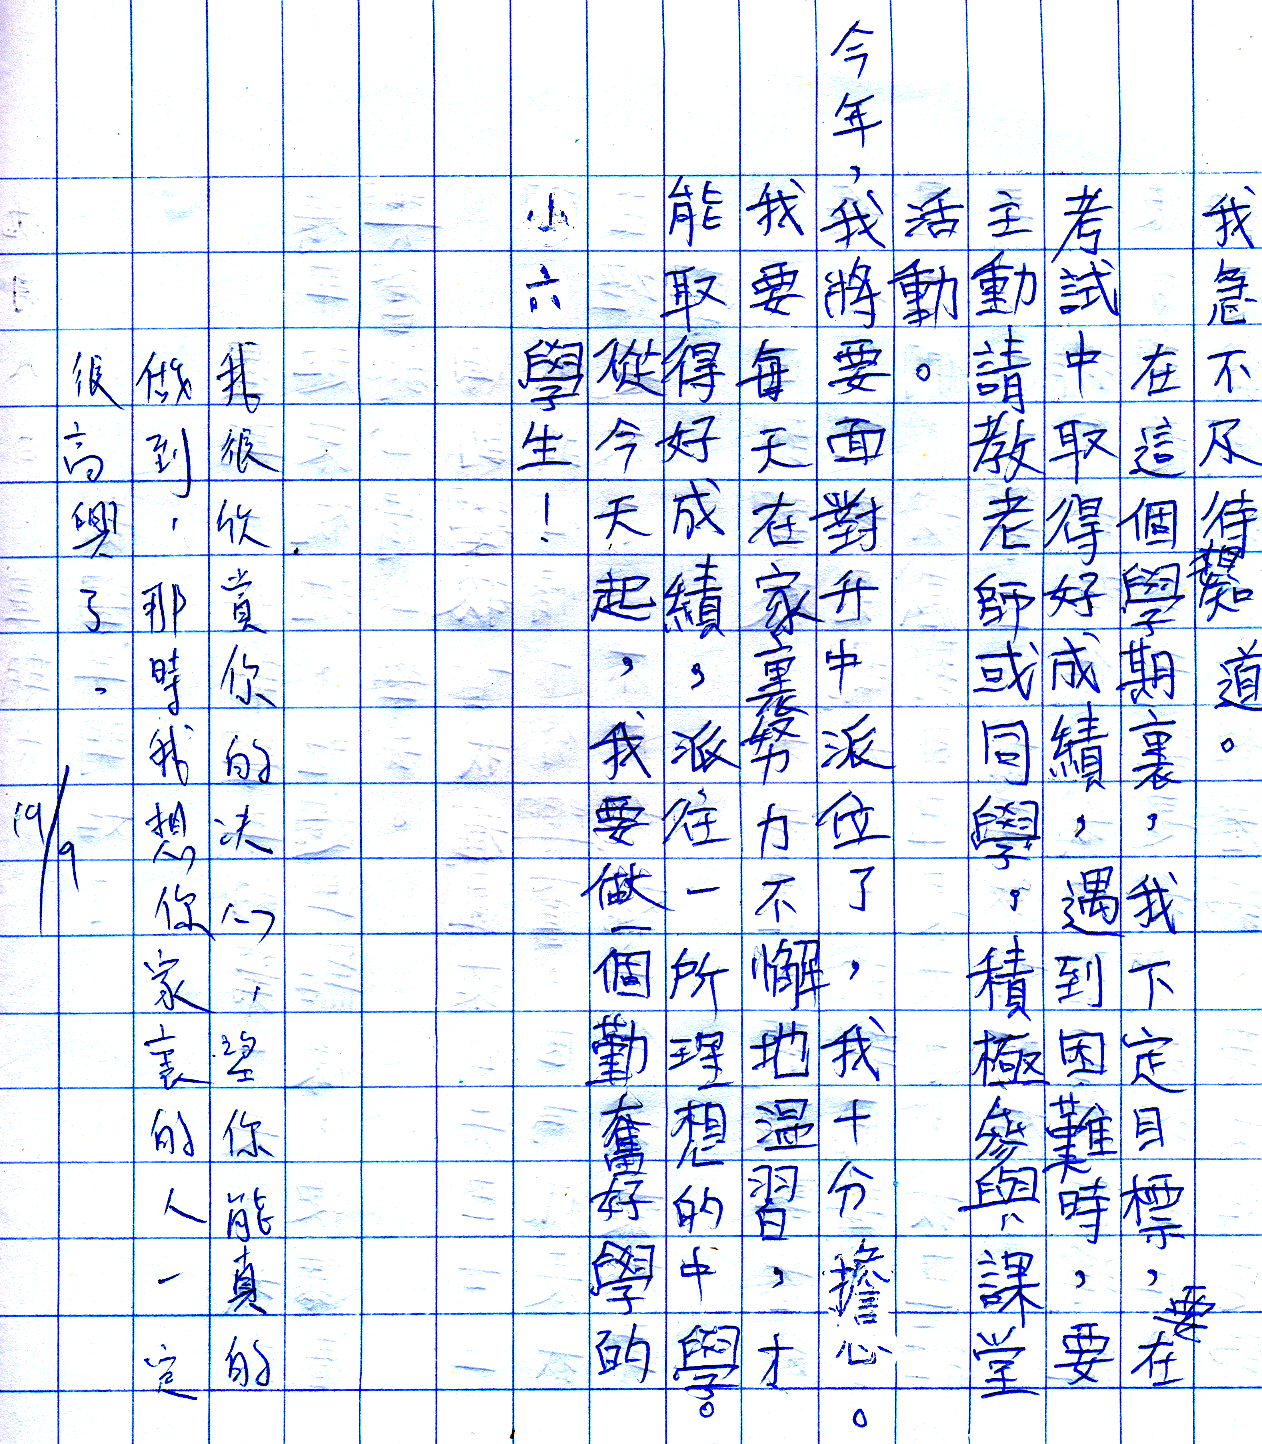 我急不及待想知道。
在這個學期裏，我下定目標，要在
考試中取得好成績，遇到困難時，要
主動請教老師或同學，積極參與課堂
活動。
今年，我將要面對升中派位了，我十分擔心。
我要每天在家裏努力不懈地溫習，才
能取得好成績，派往一所理想的中學。
從今天起，我要做一個勤奮好學的
小六學生！
我很欣賞你的决心，望你能真的
做到，那時我想你家裏的人一定
很高興了。
19/9